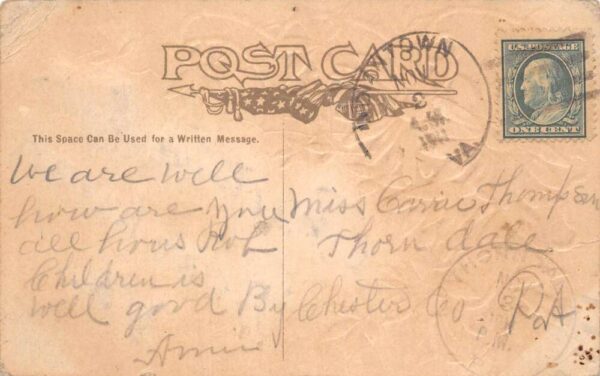 POST CARD
TOWN
VA.
U.S. POSTAGE
ONE CENT
This Space Can Be Used for a Written Message.
We are well
how are you
all hous Rob
Children is
well good By
Miss Carrie Thompson
Thorn dale
Chester Co PA